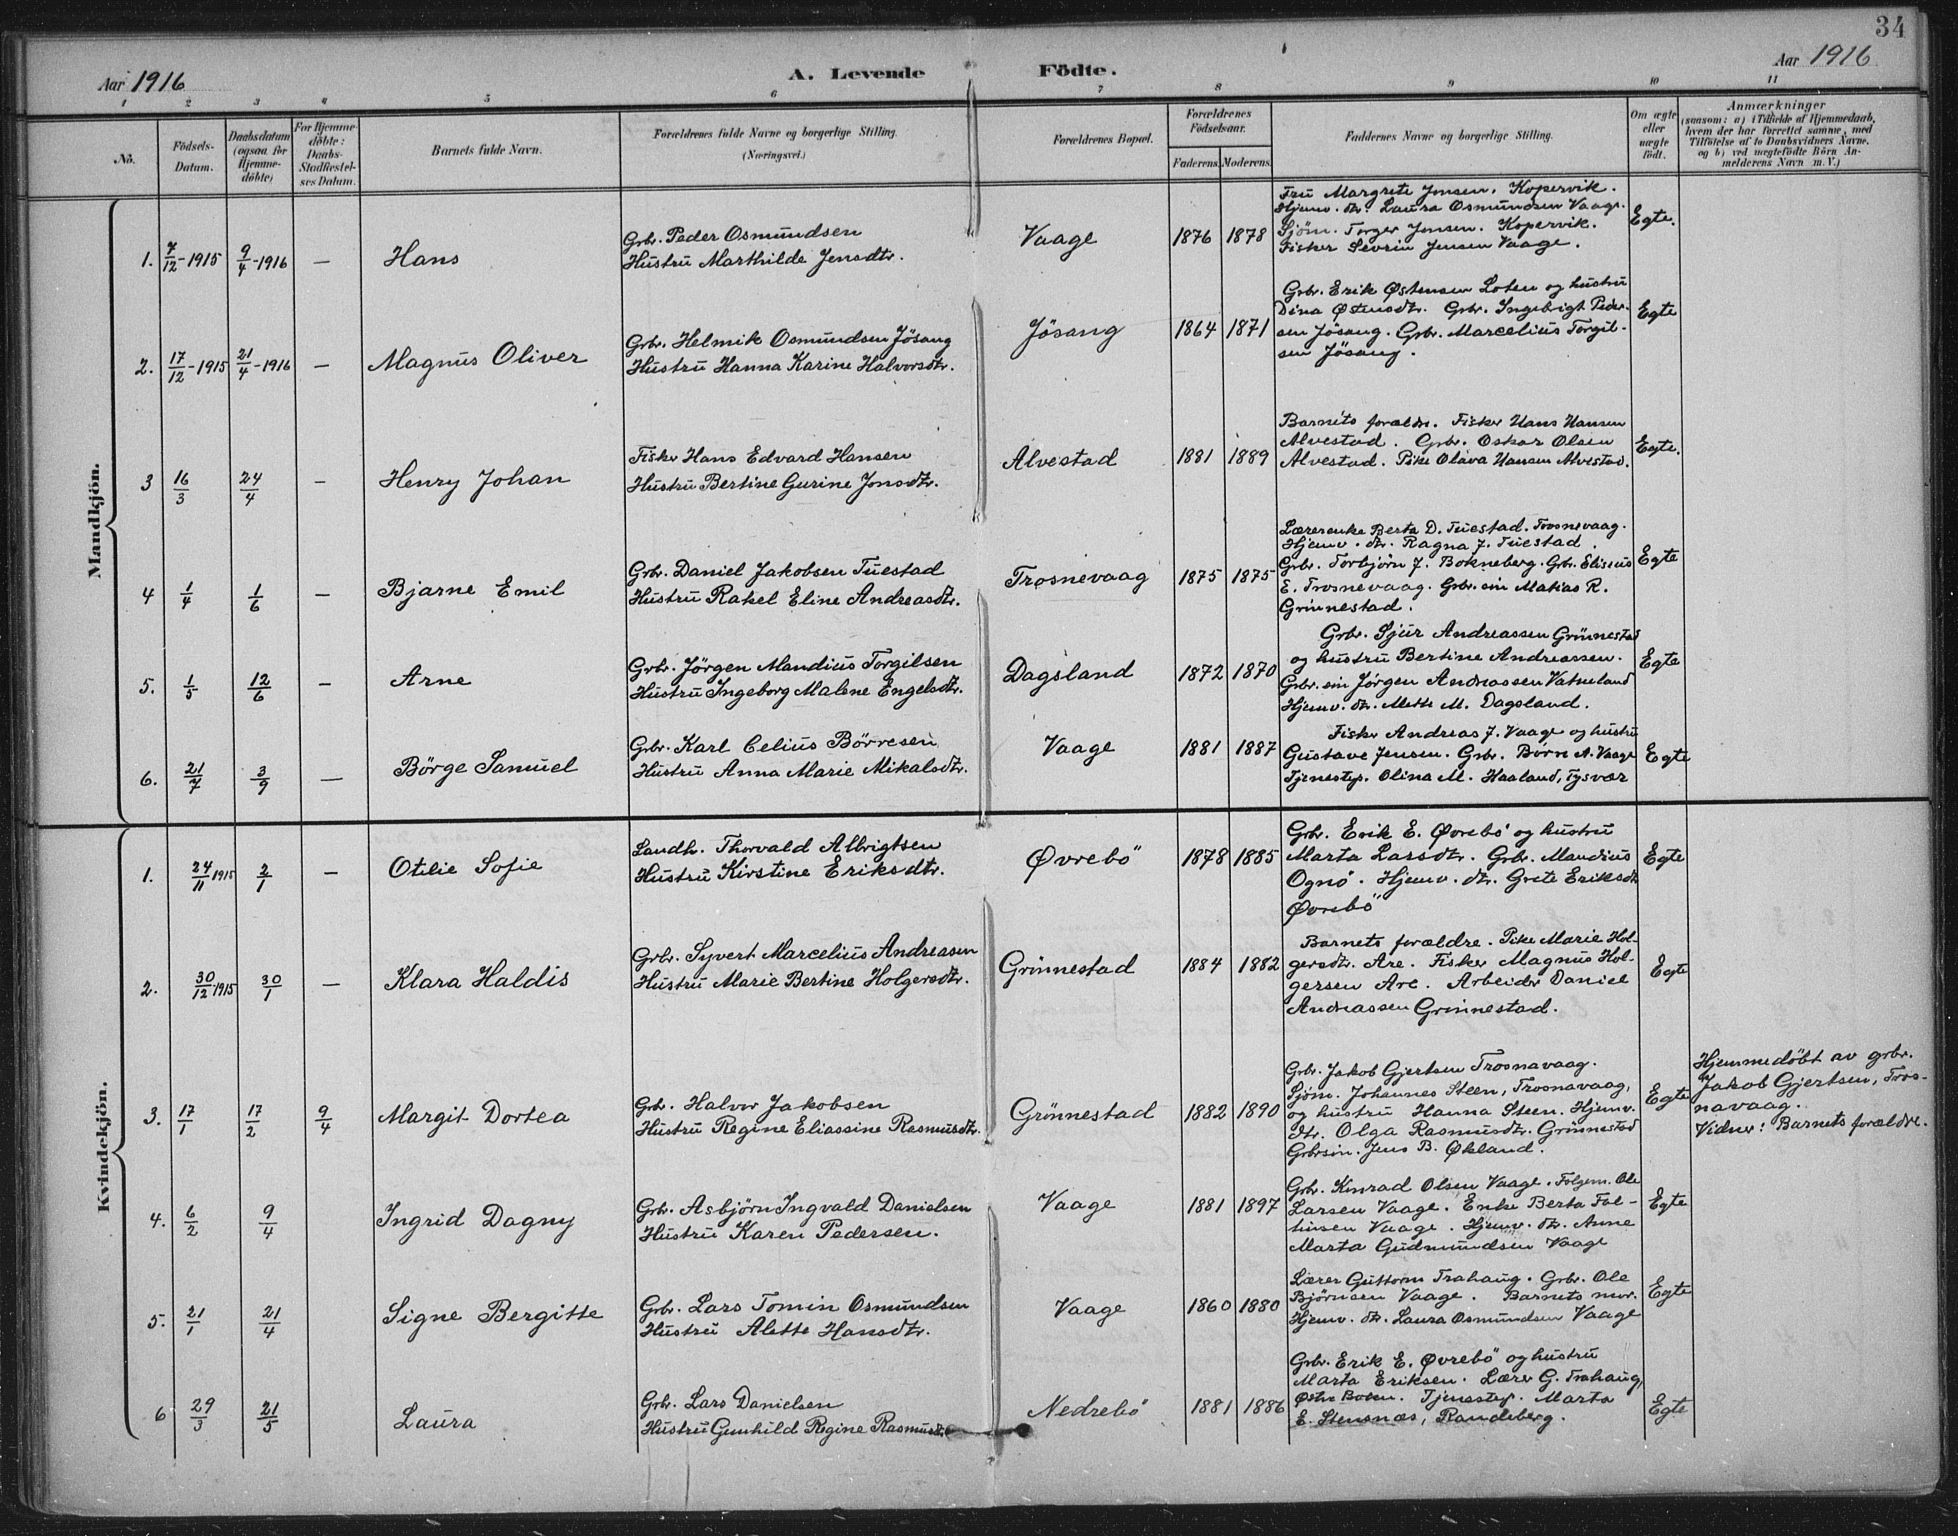 34
Aar 1916
A. Levende Födte.
Aar 1916
1 2 3 4 5 6 7 8 9 10 11
No.
Födsels-Datum.
Daabsdatum (ogsaa for Hjemme-döbte)
For Hjemme-döbte: Daabs-Stadfæstel-ses Datum.
Barnets fulde Navn.
Forældrenes fulde Navne og borgerlige Stilling.
(Næringsvei.)
Forældrenes Bopæl.
Forældrenes Födselsaar.
Faderens. Moderens.
Faddernes Navne og borgerlige Stilling.
Om ægte eller uægte født.
Anmærkninger
(saasom: a) i Tilfælde af Hjemmedaab,
hvem der har forrettet samme, med
Tilföielse af to Daabsvidners Navne.
og b) ved uægtefödte Börn An-
melderens Navn m. V.)
Mandkjön.
1. 7/12-1915 9/4-1916 — Hans
Grbr. Peder Osmundsen
Hustru Marthilde Jensdtr.
Vaage 1876 1878
Fru Margrete Jensen. Kopervik.
Hjemv. dtr. Laura Osmundsen Vaage.
Sjöm. Torger Jensen. Kopervik.
Fisker Sevrin Jensen Vaage.
Egte.
2. 17/12-1915 21/4-1916 — Magnus Oliver
Grbr. Helmik Osmundsen Jösang
Hustru Hanna Karine Halvorsdtr.
Jösang 1864 1871
Grbr. Erik Østensen Loten og hustru
Dina Østensdtr. Grbr. Ingebrigt Peder-
sen Jösang. Grbr. Marcelius Torgil-
sen Jösang.
Egte
3 16/3 24/4 — Henry Johan
Fisker Hans Edvard Hansen
Hustru Bertine Gurine Jonsdtr.
Alvestad 1881 1889
Barnets forældr. Fisker Hans Hansen
Alvestad. Grbr. Oskar Olsen
Alvestad. Pike Olava Hansen Alvestad.
Egte.
4 1/4 1/6 — Bjarne Emil
Grbr. Daniel Jakobsen Tuestad
Hustru Rakel Eline Andreasdtr.
Trosnevaag 1875 1875
Lærerenke Berta D. Tuestad. Trosnevaag.
Hjemv. dtr. Ragna J. Tuestad
Grbr. Torbjørn J. Bokneberg. Grbr. Eliseus
E. Trosnevaag. Grbr. sin Matias R.
Grinnestad.
Egte
5. 1/5 12/6 — Arne
Grbr. Jörgen Mandius Torgilsen
Hustru Ingeborg Malene Engelsdtr.
Dagsland 1872 1870
Grbr. Sjur Andreassen Grönnestad
og hustru Bertine Andreassen.
Grbr. sin Jörgen Andreassen Vatneland
Hjemv. dtr. Mette M. Dagsland.
Egte
6. 21/7 3/9 — Börge Samuel
Grbr. Karl Celius Börresen
Hustru Anna Marie Mikalsdtr.
Vaage 1881 1887
Fisker Andreas J. Vaage og hustru
Gustave Jensen. Grbr. Børn A. Vaage
Tjenestep. Olina M. Haaland, Tysvær
Egte
Kvindekjön.
1. 24/11 1915 2/1 — Otilie Sofie
Landh. Thorvald Albrigtsen
Hustru Kirstine Eriksdtr.
Øvrebö 1878 1885
Grbr. Erik E. Øvrebö og hustru
Marta Larsdtr. Grbr. Mandius
Ognö. Hjemv. dtr. Grete Eriksdtr
Øvrebö
Egte
2. 30/12 1915 30/1 — Klara Haldis
Grbr. Syvert Marcelius Andreasen
Hustru Marie Bertine Holgersdtr.
Grönnestad 1884 1882
Barnets forældre. Pike Marie Hol-
gersdtr. Are. Fisker Magnus Hol-
gersen Are. Arbeider Daniel
Andreassen Grinnestad.
Egte
3. 17/1 17/2 9/4 Margit Dortea
Grb. Halvor Jakobsen
Hustru Regine Eliassine Rasmusdtr.
Grönnestad 1882 1890
Grbr. Jakob Gjertsen Trosnavaag.
Sjöm. Johannes Steen, Trosnavaag,
og hustru Hanna Steen. Hjemv.
dtr. Olga Rasmusdtr. Grinnestad
Grbrsin. Jens B. Økland.
Egte
Hjemmedöbt av grbr.
Jakob Gjertsen, Tros-
navaag.
Vidner: Barnets forældre.
4. 6/2 9/4 Ingrid Dagny
Grbr. Asbjörn Ingvald Danielsen
Hustru Karen Pedersen.
Vaage 1881 1897
Grbr. Konrad Olsen Vaage. Folgem. Ole
Larsen Vaage. Enke Berta Tol-
lutsen Vaage. Hjemv. dtr. Anne
Marta Gudmundsen Vaage
Egte
5. 21/1 21/4 Signe Bergitte
Grbr. Lars Tomin Osmundsen
Hustru Alette Hansdtr.
Vaage 1860 1880
Lærer Guttorm Trahaug. Grbr. Ole
Björnsen Vaage. Barnets mor.
Hjemv. dtr. Laura Osmundsen Vaage
Egte
6 29/3 21/5 Laura
Grbr. Lars Danielsen
Hustru Gunhild Regine Rasmusdtr.
Nedrebö 1881 1886
Grbr. Erik E. Øvrebö og hustru
Marta Eriksen. Lærer G. Trahaug,
Østre Boken. Tjenestep. Marta
E. Stensnæs, Randeberg.
Egte